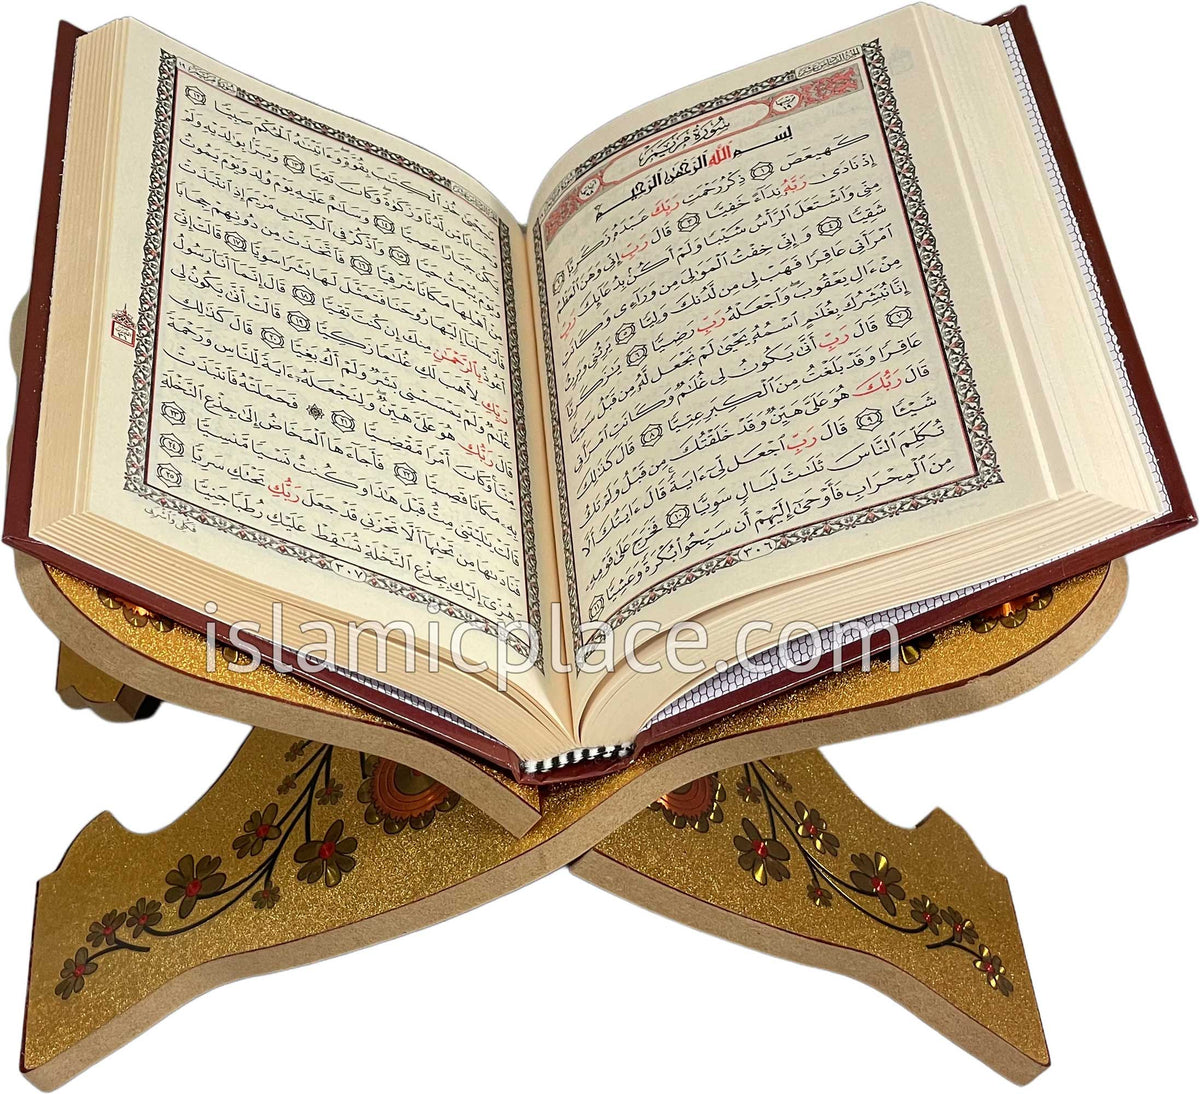 الجزء السادس عشر
سورة مريم
بِسْمِ اللَّهِ الرَّحْمَٰنِ الرَّحِيمِ
كٓهيعٓصٓ ١ ذِكْرُ رَحْمَتِ رَبِّكَ عَبْدَهُۥ زَكَرِيَّآ ٢
إِذْ نَادَىٰ رَبَّهُۥ نِدَآءً خَفِيًّا ٣ قَالَ رَبِّ إِنِّي وَهَنَ ٱلْعَظْمُ
مِنِّي وَٱشْتَعَلَ ٱلرَّأْسُ شَيْبًا وَلَمْ أَكُنۢ بِدُعَآئِكَ رَبِّ
شَقِيًّا ٤ وَإِنِّي خِفْتُ ٱلْمَوَٰلِيَ مِن وَرَآءِي وَكَانَتِ
ٱمْرَأَتِي عَاقِرًا فَهَبْ لِي مِن لَّدُنكَ وَلِيًّا ٥ يَرِثُنِي وَيَرِثُ
مِنْ ءَالِ يَعْقُوبَ وَٱجْعَلْهُ رَبِّ رَضِيًّا ٦ يَٰزَكَرِيَّآ
إِنَّا نُبَشِّرُكَ بِغُلَٰمٍ ٱسْمُهُۥ يَحْيَىٰ لَمْ نَجْعَل لَّهُۥ مِن قَبْلُ سَمِيًّا
٧ قَالَ رَبِّ أَنَّىٰ يَكُونُ لِي غُلَٰمٌ وَكَانَتِ ٱمْرَأَتِي
عَاقِرًا وَقَدْ بَلَغْتُ مِنَ ٱلْكِبَرِ عِتِيًّا ٨ قَالَ كَذَٰلِكَ
قَالَ رَبُّكَ هُوَ عَلَيَّ هَيِّنٌ وَقَدْ خَلَقْتُكَ مِن قَبْلُ وَلَمْ تَكُ
شَيْـًٔا ٩ قَالَ رَبِّ ٱجْعَل لِّيٓ ءَايَةً قَالَ ءَايَتُكَ أَلَّا
تُكَلِّمَ ٱلنَّاسَ ثَلَٰثَ لَيَالٍ سَوِيًّا ١٠ فَخَرَجَ عَلَىٰ قَوْمِهِۦ
مِنَ ٱلْمِحْرَابِ فَأَوْحَىٰٓ إِلَيْهِمْ أَن سَبِّحُوا۟ بُكْرَةً وَعَشِيًّا ١١
٣٠٦
يَٰيَحْيَىٰ خُذِ ٱلْكِتَٰبَ بِقُوَّةٍ وَءَاتَيْنَٰهُ ٱلْحُكْمَ صَبِيًّا ١٢
وَحَنَانًا مِّن لَّدُنَّا وَزَكَوٰةً وَكَانَ تَقِيًّا ١٣ وَبَرًّۢا بِوَٰلِدَيْهِ وَلَمْ
يَكُن جَبَّارًا عَصِيًّا ١٤ وَسَلَٰمٌ عَلَيْهِ يَوْمَ وُلِدَ وَيَوْمَ يَمُوتُ
وَيَوْمَ يُبْعَثُ حَيًّا ١٥ وَٱذْكُرْ فِي ٱلْكِتَٰبِ مَرْيَمَ إِذِ ٱنتَبَذَتْ
مِنْ أَهْلِهَا مَكَانًا شَرْقِيًّا ١٦ فَٱتَّخَذَتْ مِن دُونِهِمْ حِجَابًا
فَأَرْسَلْنَآ إِلَيْهَا رُوحَنَا فَتَمَثَّلَ لَهَا بَشَرًا سَوِيًّا ١٧ قَالَتْ إِنِّيٓ
أَعُوذُ بِٱلرَّحْمَٰنِ مِنكَ إِن كُنتَ تَقِيًّا ١٨ قَالَ إِنَّمَآ أَنَا۠ رَسُولُ
رَبِّكِ لِأَهَبَ لَكِ غُلَٰمًا زَكِيًّا ١٩ قَالَتْ أَنَّىٰ يَكُونُ لِي
غُلَٰمٌ وَلَمْ يَمْسَسْنِي بَشَرٌ وَلَمْ أَكُ بَغِيًّا ٢٠ قَالَ كَذَٰلِكِ
قَالَ رَبُّكِ هُوَ عَلَيَّ هَيِّنٌ وَلِنَجْعَلَهُۥٓ ءَايَةً لِّلنَّاسِ وَرَحْمَةً
مِّنَّا وَكَانَ أَمْرًا مَّقْضِيًّا ٢١ ۞ فَحَمَلَتْهُ فَٱنتَبَذَتْ
بِهِۦ مَكَانًا قَصِيًّا ٢٢ فَأَجَآءَهَا ٱلْمَخَاضُ إِلَىٰ جِذْعِ ٱلنَّخْلَةِ
قَالَتْ يَٰلَيْتَنِي مِتُّ قَبْلَ هَٰذَا وَكُنتُ نَسْيًا مَّنسِيًّا ٢٣
فَنَادَىٰهَا مِن تَحْتِهَآ أَلَّا تَحْزَنِي قَدْ جَعَلَ رَبُّكِ تَحْتَكِ سَرِيًّا ٢٤
وَهُزِّيٓ إِلَيْكِ بِجِذْعِ ٱلنَّخْلَةِ تُسَٰقِطْ عَلَيْكِ رُطَبًا جَنِيًّا ٢٥
٣٠٧
فكلي واشربي
islamicplace.com